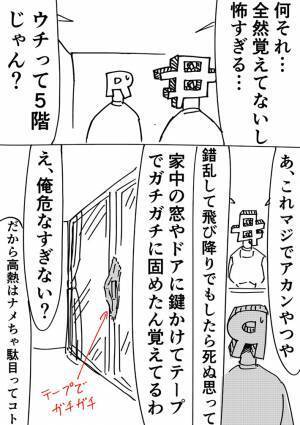 何それ…
全然覚えてないし
怖すぎる…
ウチって５階
じゃん？
あ、これマジでアカンやつや
錯乱して飛び降りでもしたら死ぬ思って
家中の窓やドアに鍵かけてテープ
でガチガチに固めたん覚えてるわ
え、俺危なすぎない？
だから高熱はナメちゃ駄目ってコト
テープで
ガチガチ